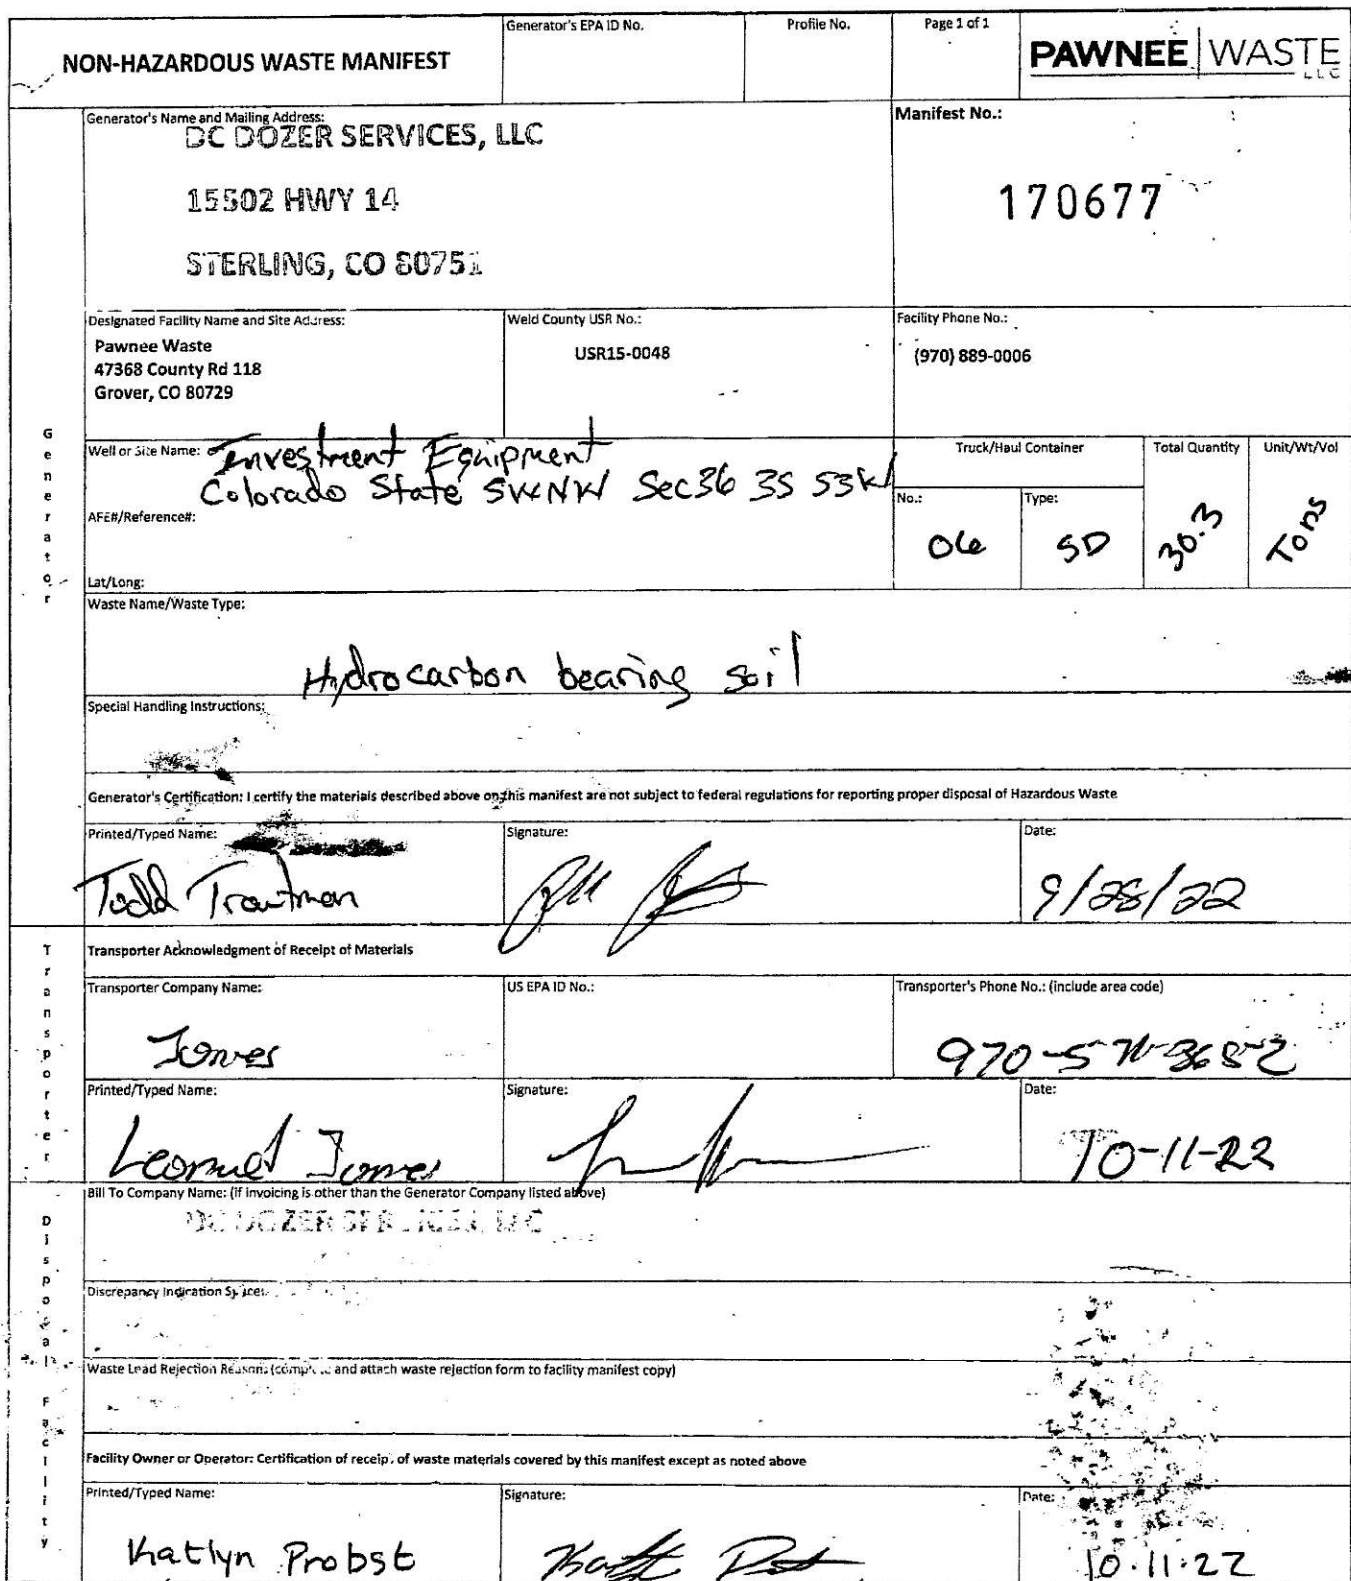 NON-HAZARDOUS WASTE MANIFEST
Generator's EPA ID No.
Profile No.
Page 1 of 1
PAWNEE WASTE
LLC
Generator's Name and Mailing Address:
DC DOZER SERVICES, LLC
15502 HWY 14
STERLING, CO 80751
Manifest No.:
170677
Designated Facility Name and Site Address:
Pawnee Waste
47368 County Rd 118
Grover, CO 80729
Weld County USR No.:
USR15-0048
Facility Phone No.:
(970) 889-0006
Generator
Well or Site Name: Investment Equipment
Colorado State SWNW Sec36 3S 53W
AFE#/Reference#:
Lat/Long:
Truck/Haul Container
No.:
06
Type:
SD
Total Quantity
30.3
Unit/Wt/Vol
Tons
Waste Name/Waste Type:
Hydrocarbon bearing soil
Special Handling Instructions:
Generator's Certification: I certify the materials described above on this manifest are not subject to federal regulations for reporting proper disposal of Hazardous Waste
Printed/Typed Name:
Todd Trautman
Signature:
Date:
9/28/22
Transporter
Transporter Acknowledgment of Receipt of Materials
Transporter Company Name:
US EPA ID No.:
Transporter's Phone No.: (include area code)
Printed/Typed Name:
Signature:
Date:
10-11-22
Disposal Facility
Bill To Company Name: (if invoicing is other than the Generator Company listed above)
Discrepancy Indication Space:
Waste Load Rejection Reason: (complete and attach waste rejection form to facility manifest copy)
Facility Owner or Operator: Certification of receipt of waste materials covered by this manifest except as noted above
Printed/Typed Name:
Katlyn Probst
Signature:
Date:
10.11.22